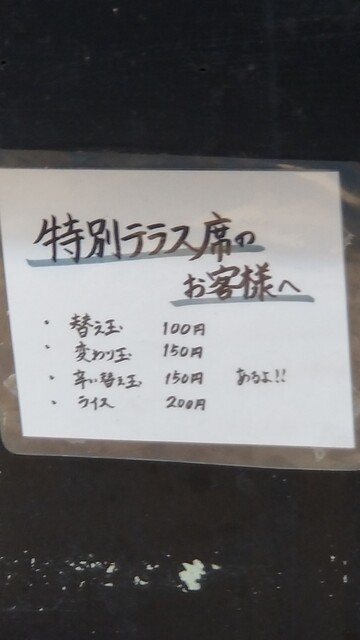 特別テラス席の
お客様へ
・替え玉 100円
・変わり玉 150円
・辛い替え玉 150円 あるよ!!
・ライス 200円